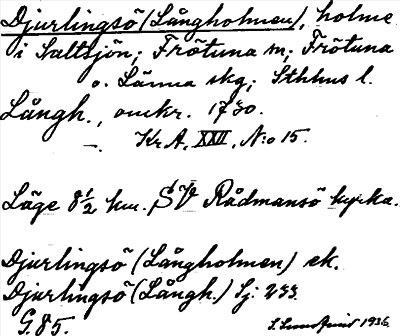 Djurlingsö (Långholmen), holme
i Saltsjön; Frötuna sn; Frötuna
o. Länna skg; Sthlms l.
Långh., omkr. 1730.
—. Kr A, XXII, N:o 15.
Läge 8½ km. SV Rådmansö kyrka.
Djurlingsö (Långholmen) ek.
Djurlingsö (Långh.) Sj: 233.
G. 85. 1936